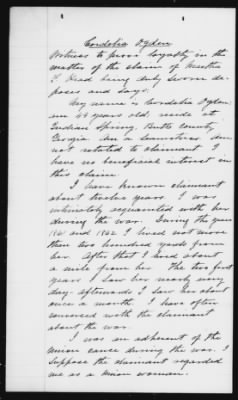 Cordelia Ogden
Witness to prove loyalty in the
matter of the claim of Martha
J. Head being duly sworn de-
poses and says:
My name is Cordelia Ogden;
am 49 years old, reside at
Indian Spring, Butts County
Georgia. Am a Seamstress. Am
not related to claimant. I
have no beneficial interest in
this claim.
I have known claimant
about twelve years. I was
intimately acquainted with her
during the war. During the years
1861 and 1862 I lived not more
than two hundred yards from
her. After that I lived about
a mile from her. The two first
years I saw her most every
day. Afterwards I saw her about
once a month. I have often
conversed with the claimant
about the war.
I was an adherent of the
Union cause during the war. I
suppose the claimant regarded
me as a Union woman.